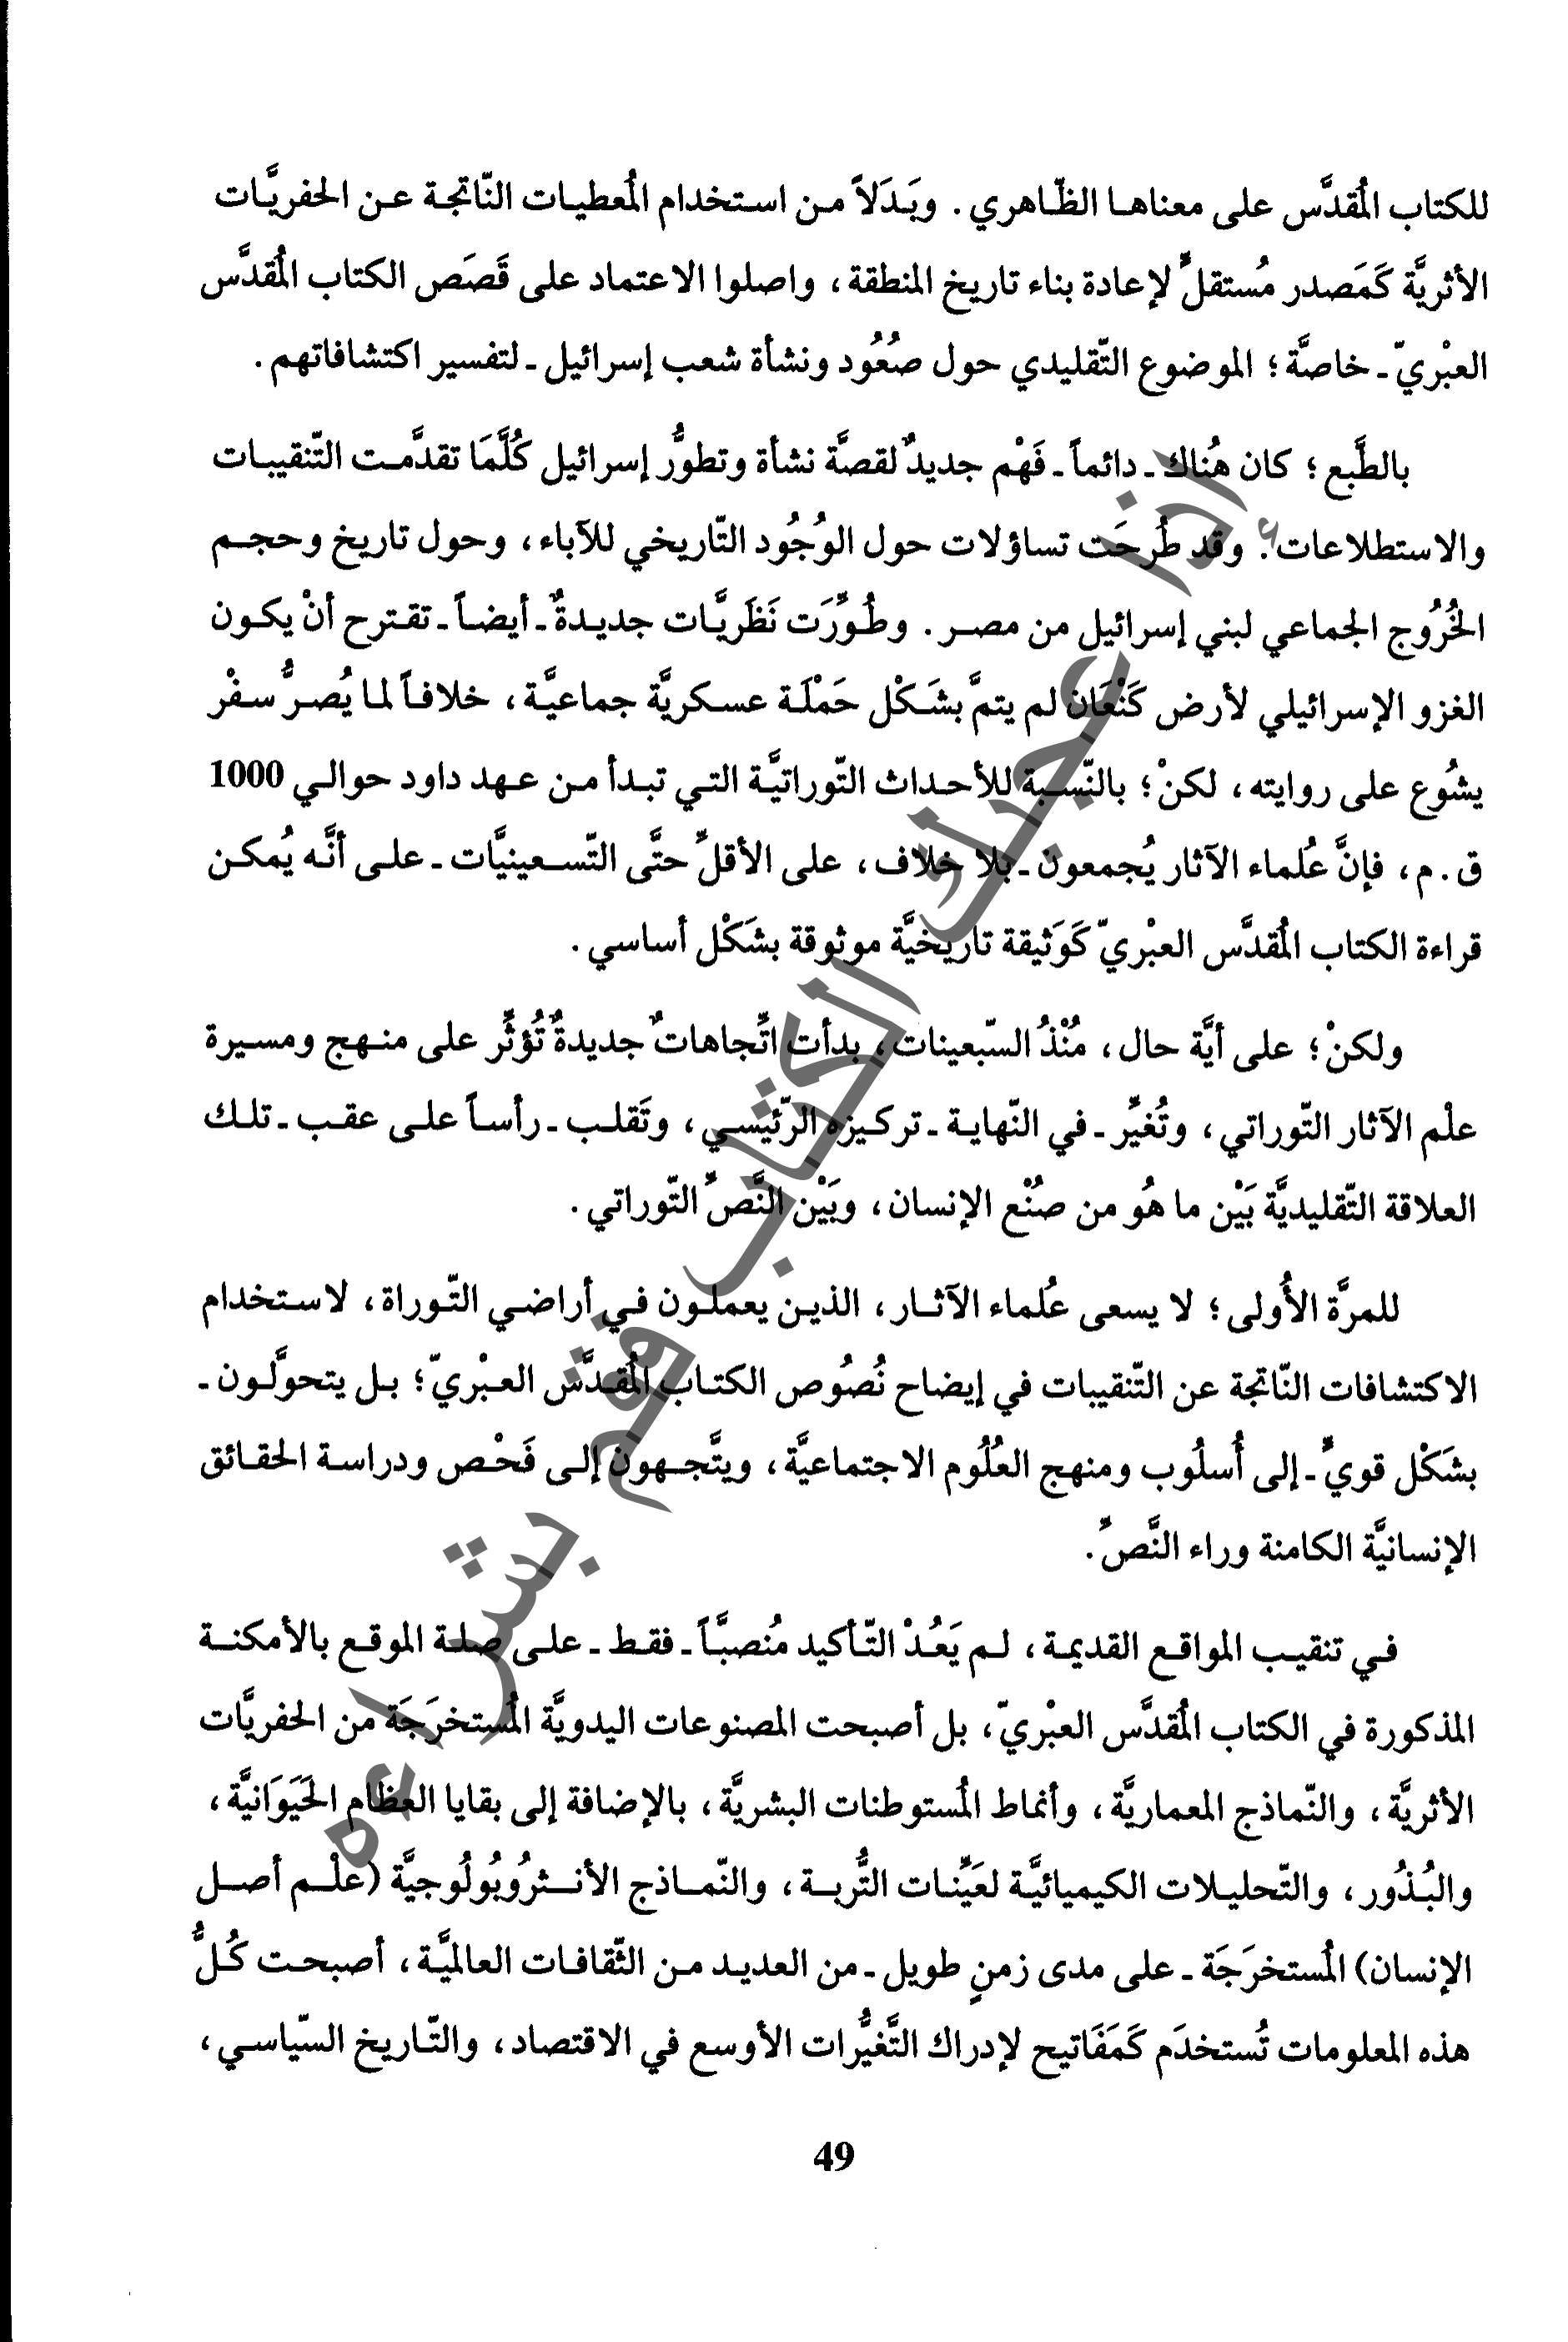 للكتاب المُقدَّس على معناها الظّاهري. وبَدَلاً من استخدام المُعطيات النّاتجة عن الحفريَّات
الأثريَّة كَمَصدر مُستقلٍّ لإعادة بناء تاريخ المنطقة، واصلوا الاعتماد على قَصَص الكتاب المُقدَّس
العبْريّ ـ خاصَّة؛ الموضوع التّقليدي حول صُعُود ونشأة شعب إسرائيل ـ لتفسير اكتشافاتهم.
بالطَّبع؛ كان هُناك ـ دائماً ـ فَهْم جديدٌ لقصَّة نشأة وتطوُّر إسرائيل كُلَّمَا تقدَّمت التّنقيبات
والاستطلاعات. وقد طُرحَت تساؤلات حول الوُجُود التّاريخي للآباء، وحول تاريخ وحجم
الخُرُوج الجماعي لبني إسرائيل من مصر. وطُوِّرَت نَظَريَّات جديدةٌ ـ أيضاً ـ تقترح أنْ يكون
الغزو الإسرائيلي لأرض كَنْعَان لم يتمَّ بشَكْل حَمْلَة عسكريَّة جماعيَّة، خلافاً لما يُصرُّ سفْر
يشُوع على روايته، لكنْ؛ بالنّسبة للأحداث التّوراتيَّة التي تبدأ من عهد داود حوالي 1000
ق.م، فإنَّ عُلماء الآثار يُجمعون ـ بلا خلاف، على الأقلِّ حتَّى التّسعينيَّات ـ على أنَّه يُمكن
قراءة الكتاب المُقدَّس العبْريّ كَوَثيقة تاريخيَّة موثوقة بشَكْل أساسي.
ولكنْ؛ على أيَّة حال، مُنْذُ السّبعينات، بدأت اتِّجاهاتٌ جديدةٌ تُؤثِّر على منهج ومسيرة
علْم الآثار التّوراتي، وتُغيِّر ـ في النّهاية ـ تركيزه الرّئيسي، وتَقلب ـ رأساً على عقب ـ تلك
العلاقة التّقليديَّة بَيْن ما هُو من صُنْع الإنسان، وبَيْن النَّصِّ التّوراتي.
للمرَّة الأُولى؛ لا يسعى عُلماء الآثار، الذين يعملون في أراضي التّوراة، لاستخدام
الاكتشافات النّاتجة عن التّنقيبات في إيضاح نُصُوص الكتاب المُقدَّس العبْريّ؛ بل يتحوَّلون ـ
بشَكْل قويٍّ ـ إلى أُسلُوب ومنهج العُلُوم الاجتماعيَّة، ويتَّجهون إلى فَحْص ودراسة الحقائق
الإنسانيَّة الكامنة وراء النَّصِّ.
في تنقيب المواقع القديمة، لم يَعُدْ التّأكيد مُنصبَّاً ـ فقط ـ على صلة الموقع بالأمكنة
المذكورة في الكتاب المُقدَّس العبْريّ، بل أصبحت المصنوعات اليدويَّة المُستخرَجَة من الحفريَّات
الأثريَّة، والنّماذج المعماريَّة، وأنماط المُستوطنات البشريَّة، بالإضافة إلى بقايا العظام الحَيَوَانيَّة،
والبُذُور، والتّحليلات الكيميائيَّة لعَيِّنات التُّربة، والنّماذج الأنثرُوبُولُوجيَّة (علْم أصل
الإنسان) المُستخرَجَة ـ على مدى زمنٍ طويل ـ من العديد من الثّقافات العالميَّة، أصبحت كُلُّ
هذه المعلومات تُستخدَم كَمَفَاتيح لإدراك التَّغيُّرات الأوسع في الاقتصاد، والتّاريخ السّياسي،
49
إذا أعجبك الكتاب فقم بشراءه